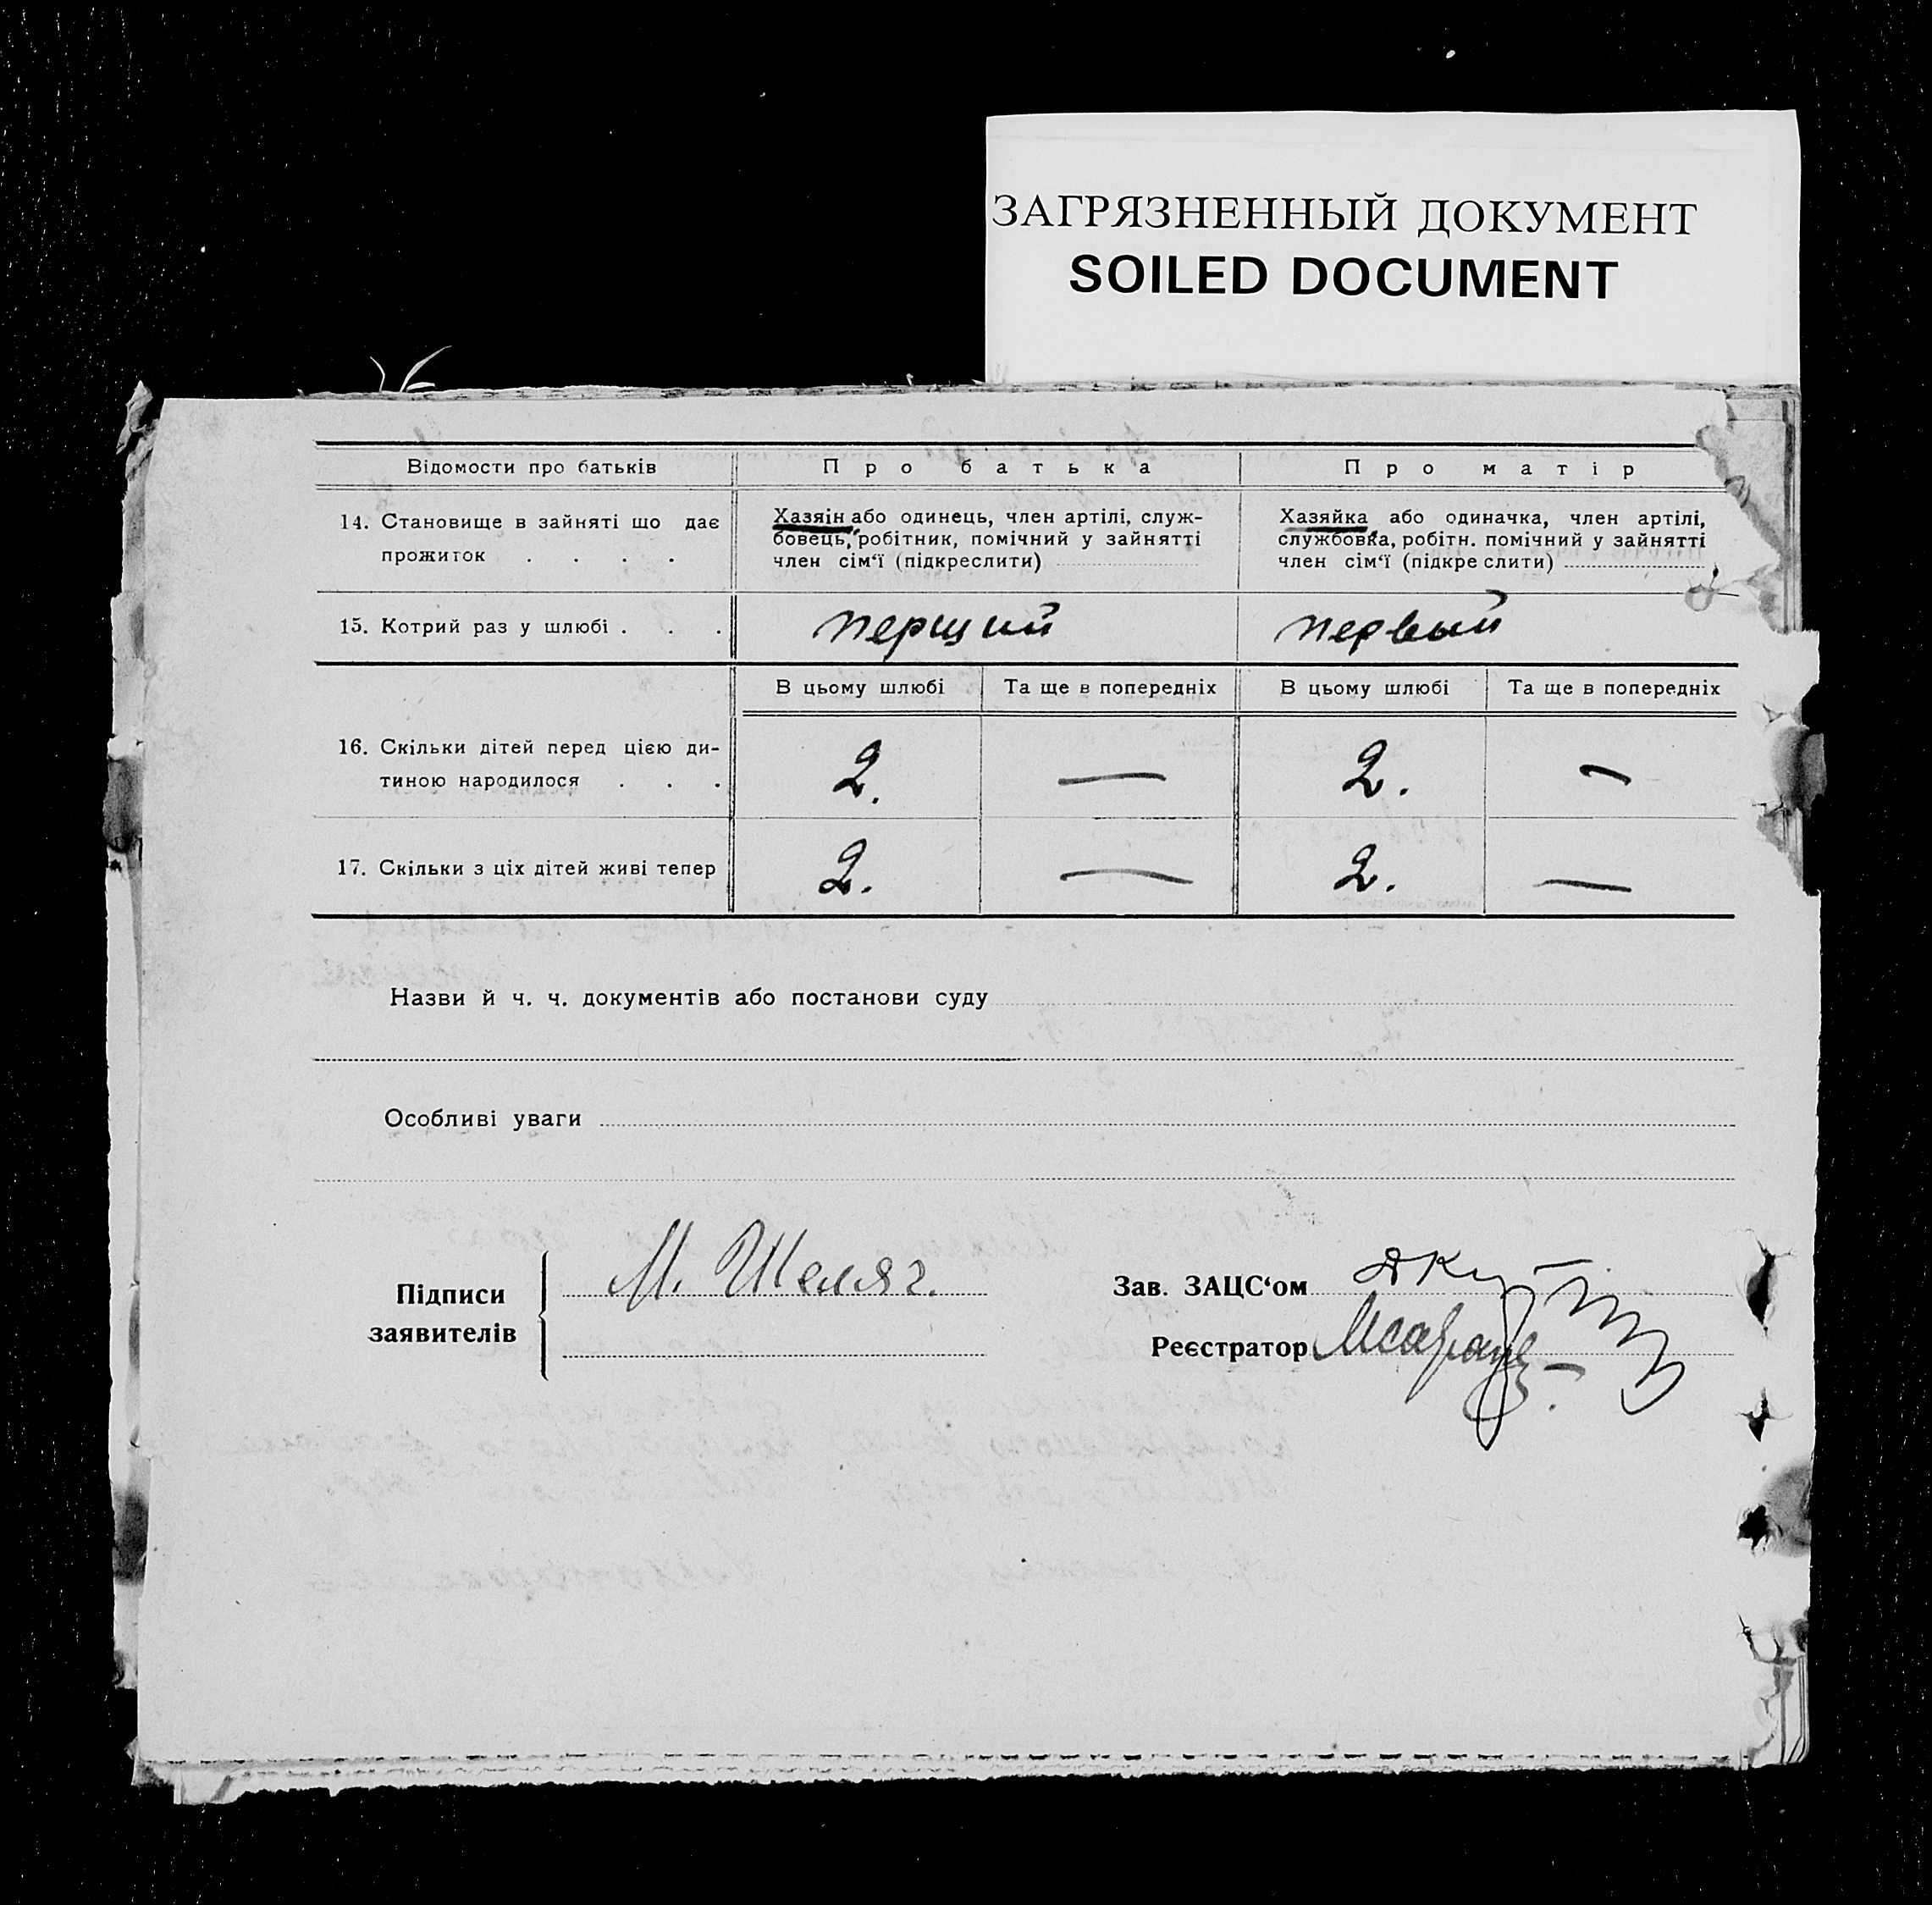 ЗАГРЯЗНЕННЫЙ ДОКУМЕНТ
SOILED DOCUMENT
Відомости про батьків
Про батька
Про матір
14. Становище в зайняті що дає
прожиток . . . .
Хазяін або одинець, член артілі, служ-
бовець, робітник, помічний у зайнятті
член сім‘ї (підкреслити)
Хазяйка або одиначка, член артілі,
службовка, робітн. помічний у зайнятті
член сім‘ї (підкреслити)
15. Котрий раз у шлюбі . . .
перщий
первый
В цьому шлюбі
Та ще в попередніх
В цьому шлюбі
Та ще в попередніх
16. Скільки дітей перед цією ди-
тиною народилося . . .
2.
—
2.
—
17. Скільки з ціх дітей живі тепер
2.
—
2.
—
Назви й ч. ч. документів або постанови суду
Особливі уваги
Підписи
заявителів
М. Шеляг.
Зав. ЗАЦС‘ом
Реєстратор